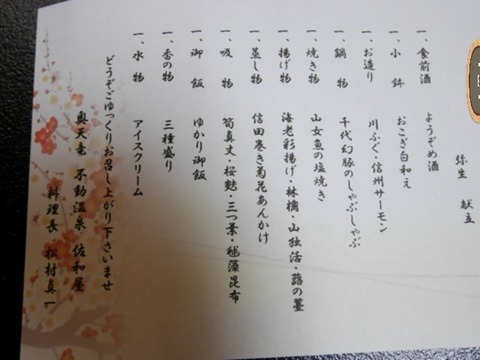 弥生 献立
一、食前酒 ようぞめ酒
一、小鉢 おこぎ白和え
一、お造り 川ふぐ・信州サーモン
一、鍋物 千代幻豚のしゃぶしゃぶ
一、焼き物 山女魚の塩焼き
一、揚げ物 海老彩揚げ・林檎・山独活・蕗の薹
一、蒸し物 信田巻き菊花あんかけ
一、吸物 筍真丈・桜麩・三つ葉・毬藻昆布
一、御飯 ゆかり御飯
一、香の物 三種盛り
一、水物 アイスクリーム
どうぞごゆっくりお召し上がり下さいませ
奥天竜 不動温泉 佐和屋
料理長 松村真一